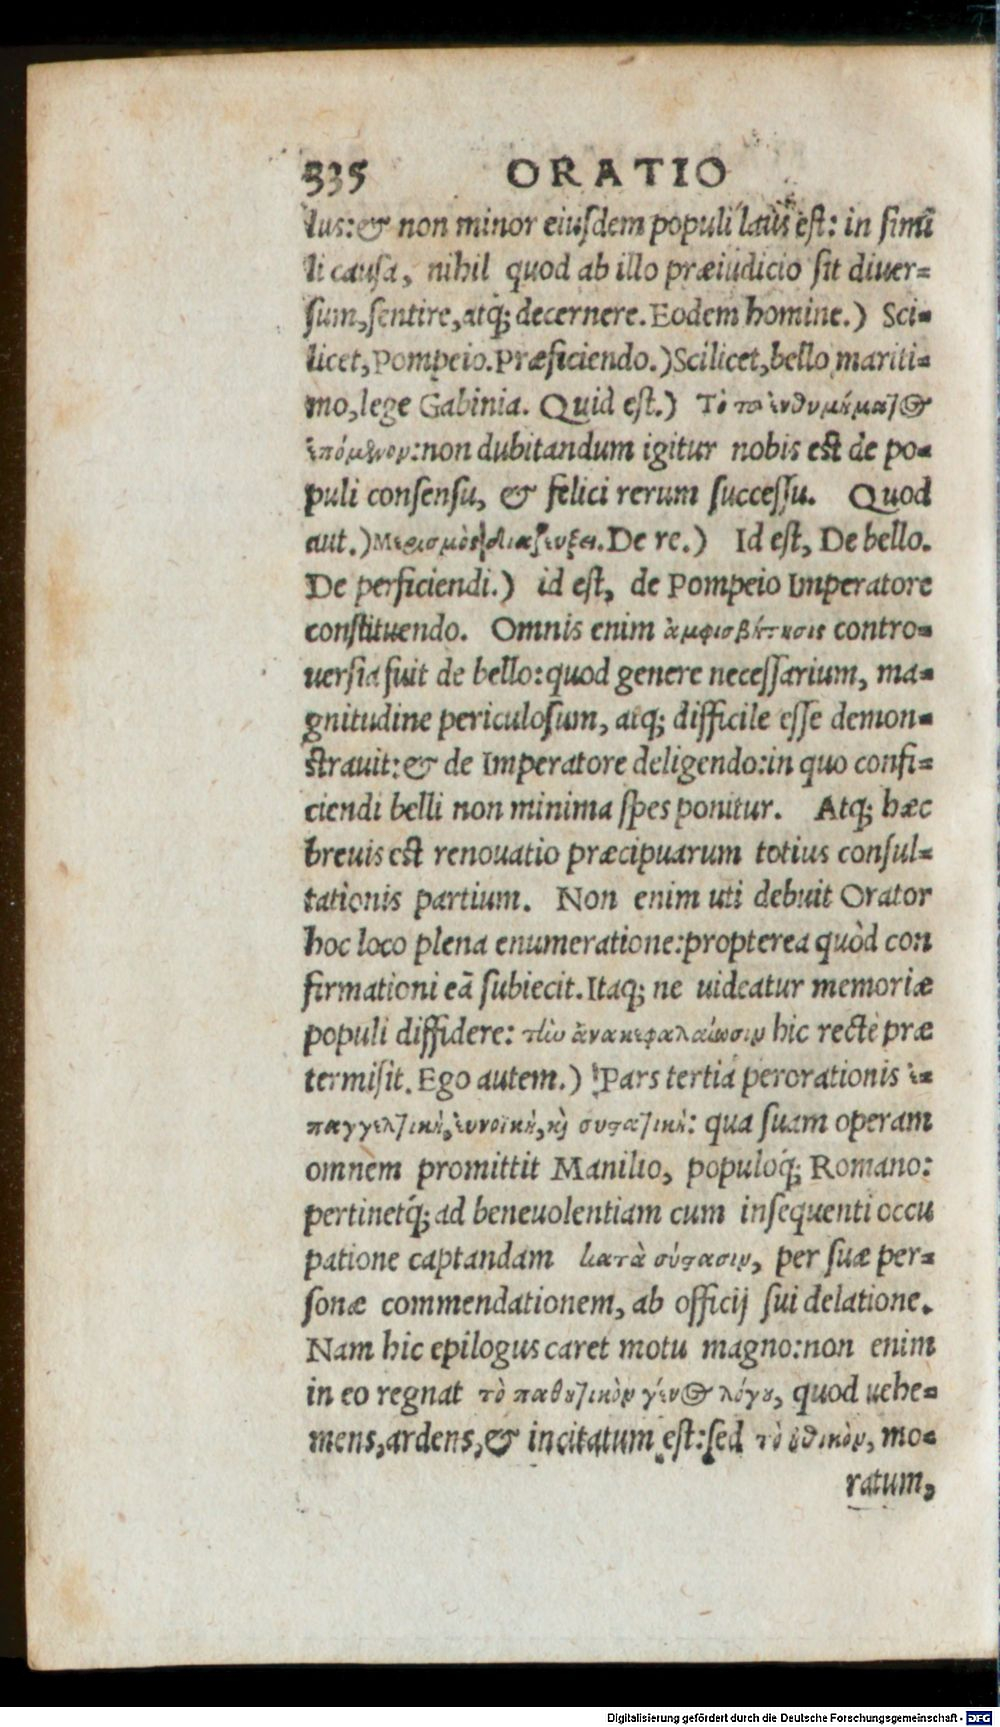 335 ORATIO
lus:& non minor eiusdem populi laus est: in simi
li causa, nihil quod ab illo præiudicio sit diuer=
sum,sentire,atq; decernere. Eodem homine.) Sci=
licet,Pompeio. Præficiendo.) Scilicet,bello mariti=
mo,lege Gabinia. Quid est.) Τὸ τοῦ ἐνθυμήματος
ἑπόμενον:non dubitandum igitur nobis est de po=
puli consensu, & felici rerum successu. Quod
aut.) Μερισμὸς διαζεύξει. De re.) Id est, De bello.
De perficiendi.) id est, de Pompeio Imperatore
constituendo. Omnis enim ἀμφισβήτησις contro=
uersia fuit de bello:quod genere necessarium, ma=
gnitudine periculosum, atq; difficile esse demon=
strauit:& de Imperatore deligendo:in quo confi=
ciendi belli non minima spes ponitur. Atq; hæc
breuis est renouatio præcipuarum totius consul=
tationis partium. Non enim uti debuit Orator
hoc loco plena enumeratione:propterea quòd con
firmationi eā subiecit. Itaq; ne uideatur memoriæ
populi diffidere: τὴν ἀνακεφαλαίωσιν hic recte præ
termisit. Ego autem.) Pars tertia perorationis ἐ=
παγγελτικὴ,εὐνοϊκὴ,κὶ συστατικὴ: qua suam operam
omnem promittit Manilio, populoq́; Romano:
pertinetq́; ad beneuolentiam cum insequenti occu
patione captandam κατὰ σύστασιν, per suæ per=
sonæ commendationem, ab officij sui delatione.
Nam hic epilogus caret motu magno:non enim
in eo regnat τὸ παθητικὸν γένος λόγου, quod uehe=
mens,ardens,& incitatum est:sed τὸ ἠθικὸν, mo=
ratum,
Digitalisierung gefördert durch die Deutsche Forschungsgemeinschaft - DFG